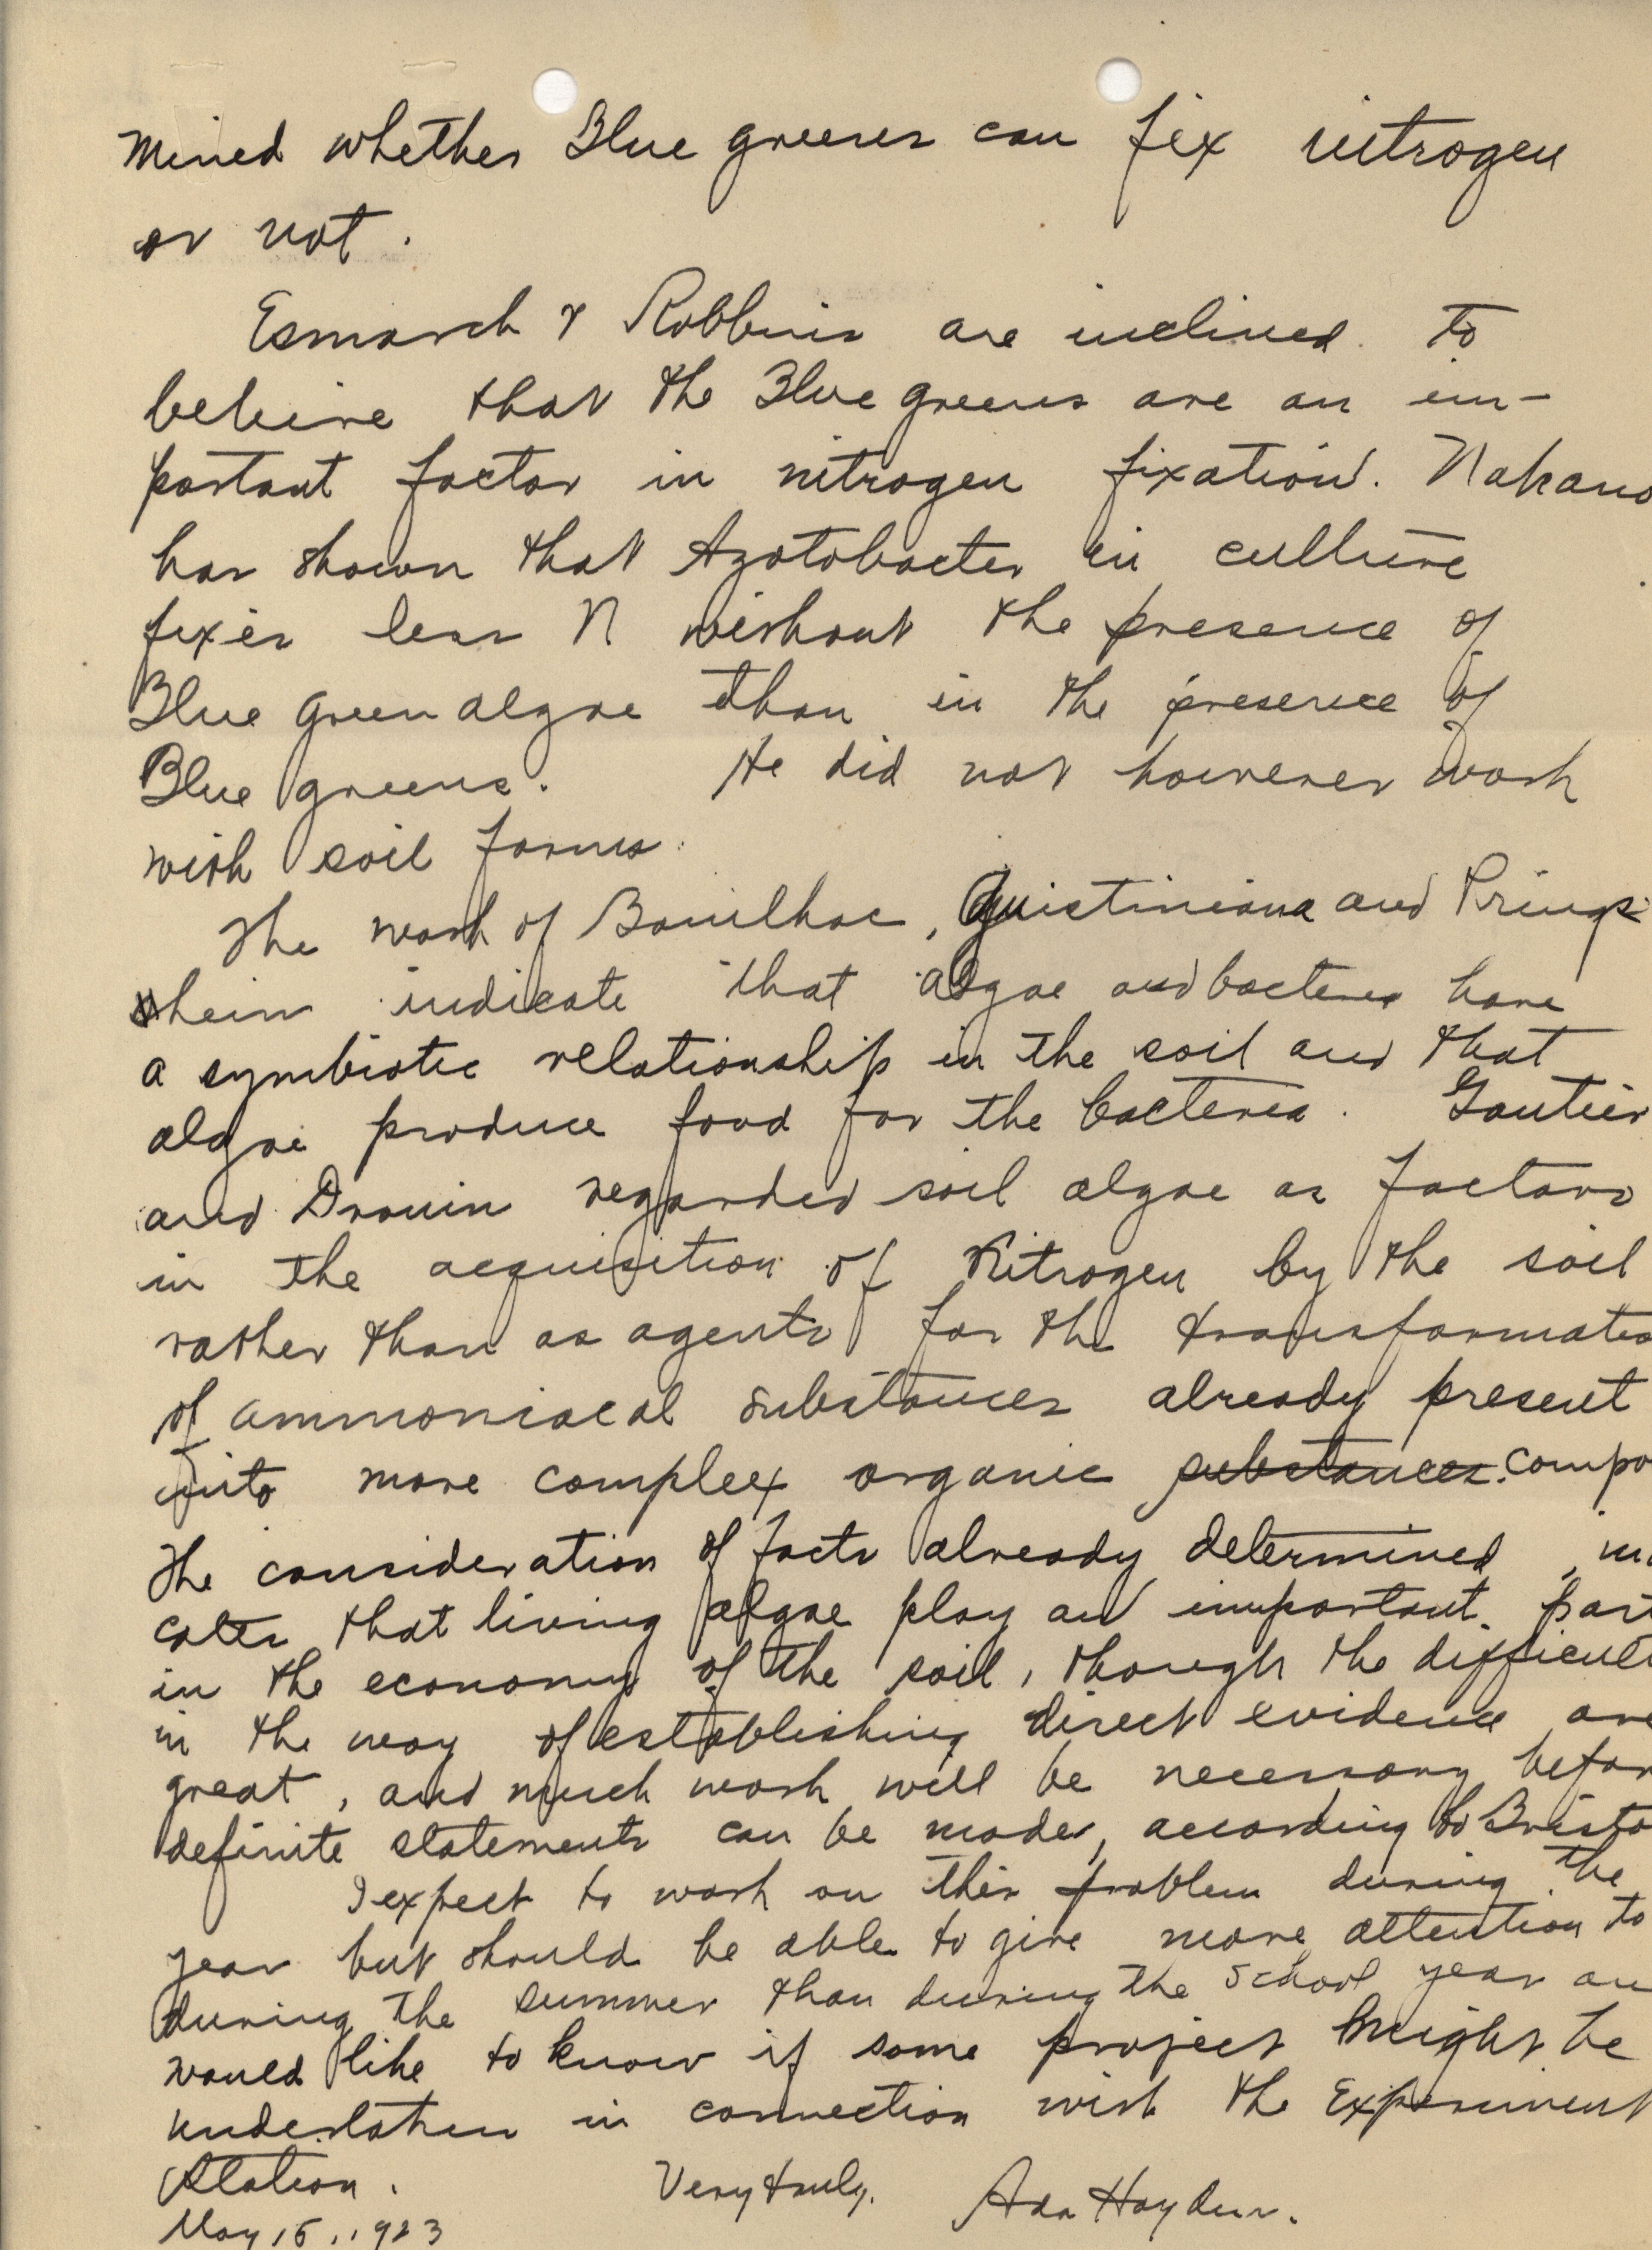 mined whether Blue greens can fix nitrogen
or not.
Esmarch & Robbins are inclined to
believe that the Blue greens are an im-
portant factor in nitrogen fixation. Nakano
has shown that Azotobacter in culture
fixes less N without the presence of
Blue green algae than in the presence of
Blue greens. He did not however work
with soil forms.
The work of Bouilhac, Guistiniana and Prings
heim indicate that algae and bacteria have
a symbiotic relationship in the soil and that
algae produce food for the bacteria. Gautier
and Drouin regarded soil algae as factors
in the acquisition of Nitrogen by the soil
rather than as agents for the transformatio
of ammoniacal substances already present
into more compleex organic substances. compo
The consideration of facts already determined, in
cates that living algae play an important part
in the economy of the soil, though the difficult
in the way of establishing direct evidence are
great, and much work will be necessary befor
definite statements can be made, according to Bristo
I expect to work on this problem during the
year but should be able to give more attention to
during the summer than during the school year an
would like to know if some project might be
undertaken in connection with the Experiment
Station. Very truly, Ada Hayden.
May 15, 1923